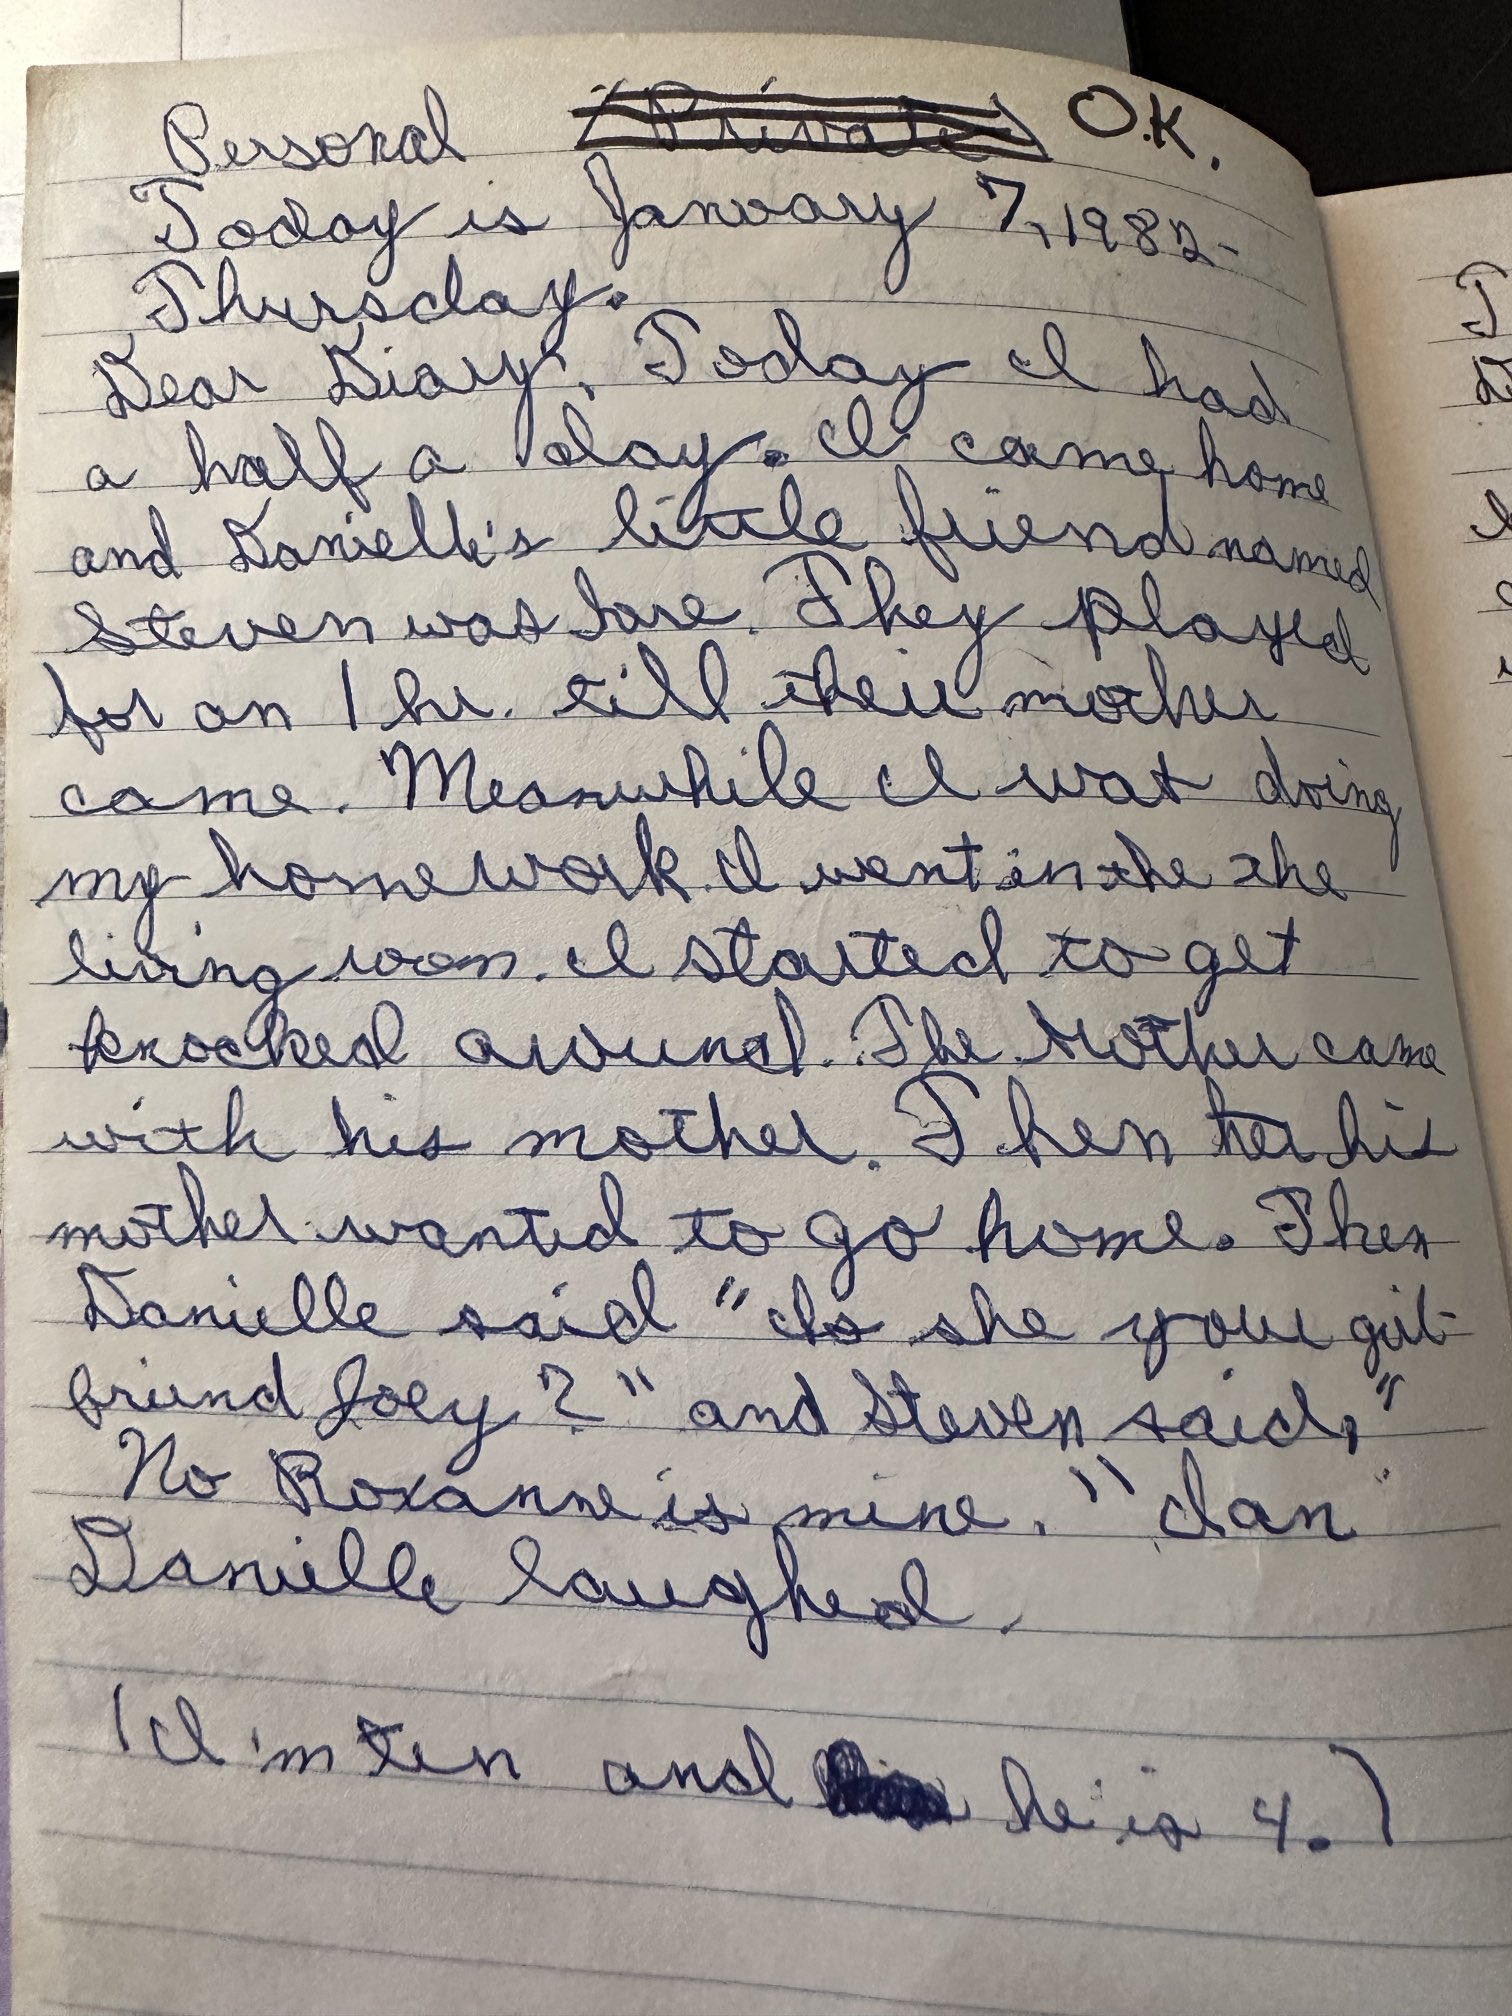 Personal (Private) O.K.
Today is January 7, 1982-
Thursday.
Dear Diary, Today I had
a half a day. I came home
and Danielle's little friend named
Steven was here. They played
for an 1 hr. till their mother
came. Meanwhile I wat doing
my homework. I went in the the
living room. I started to get
knocked around. The Mother came
with his mother. Then her his
mother wanted to go home. Then
Danielle said "Is she your girl-
friend Joey?" and Steven said, "
No Roxanne is mine." dan
Danielle laughed.
(I'm ten and he is 4.)